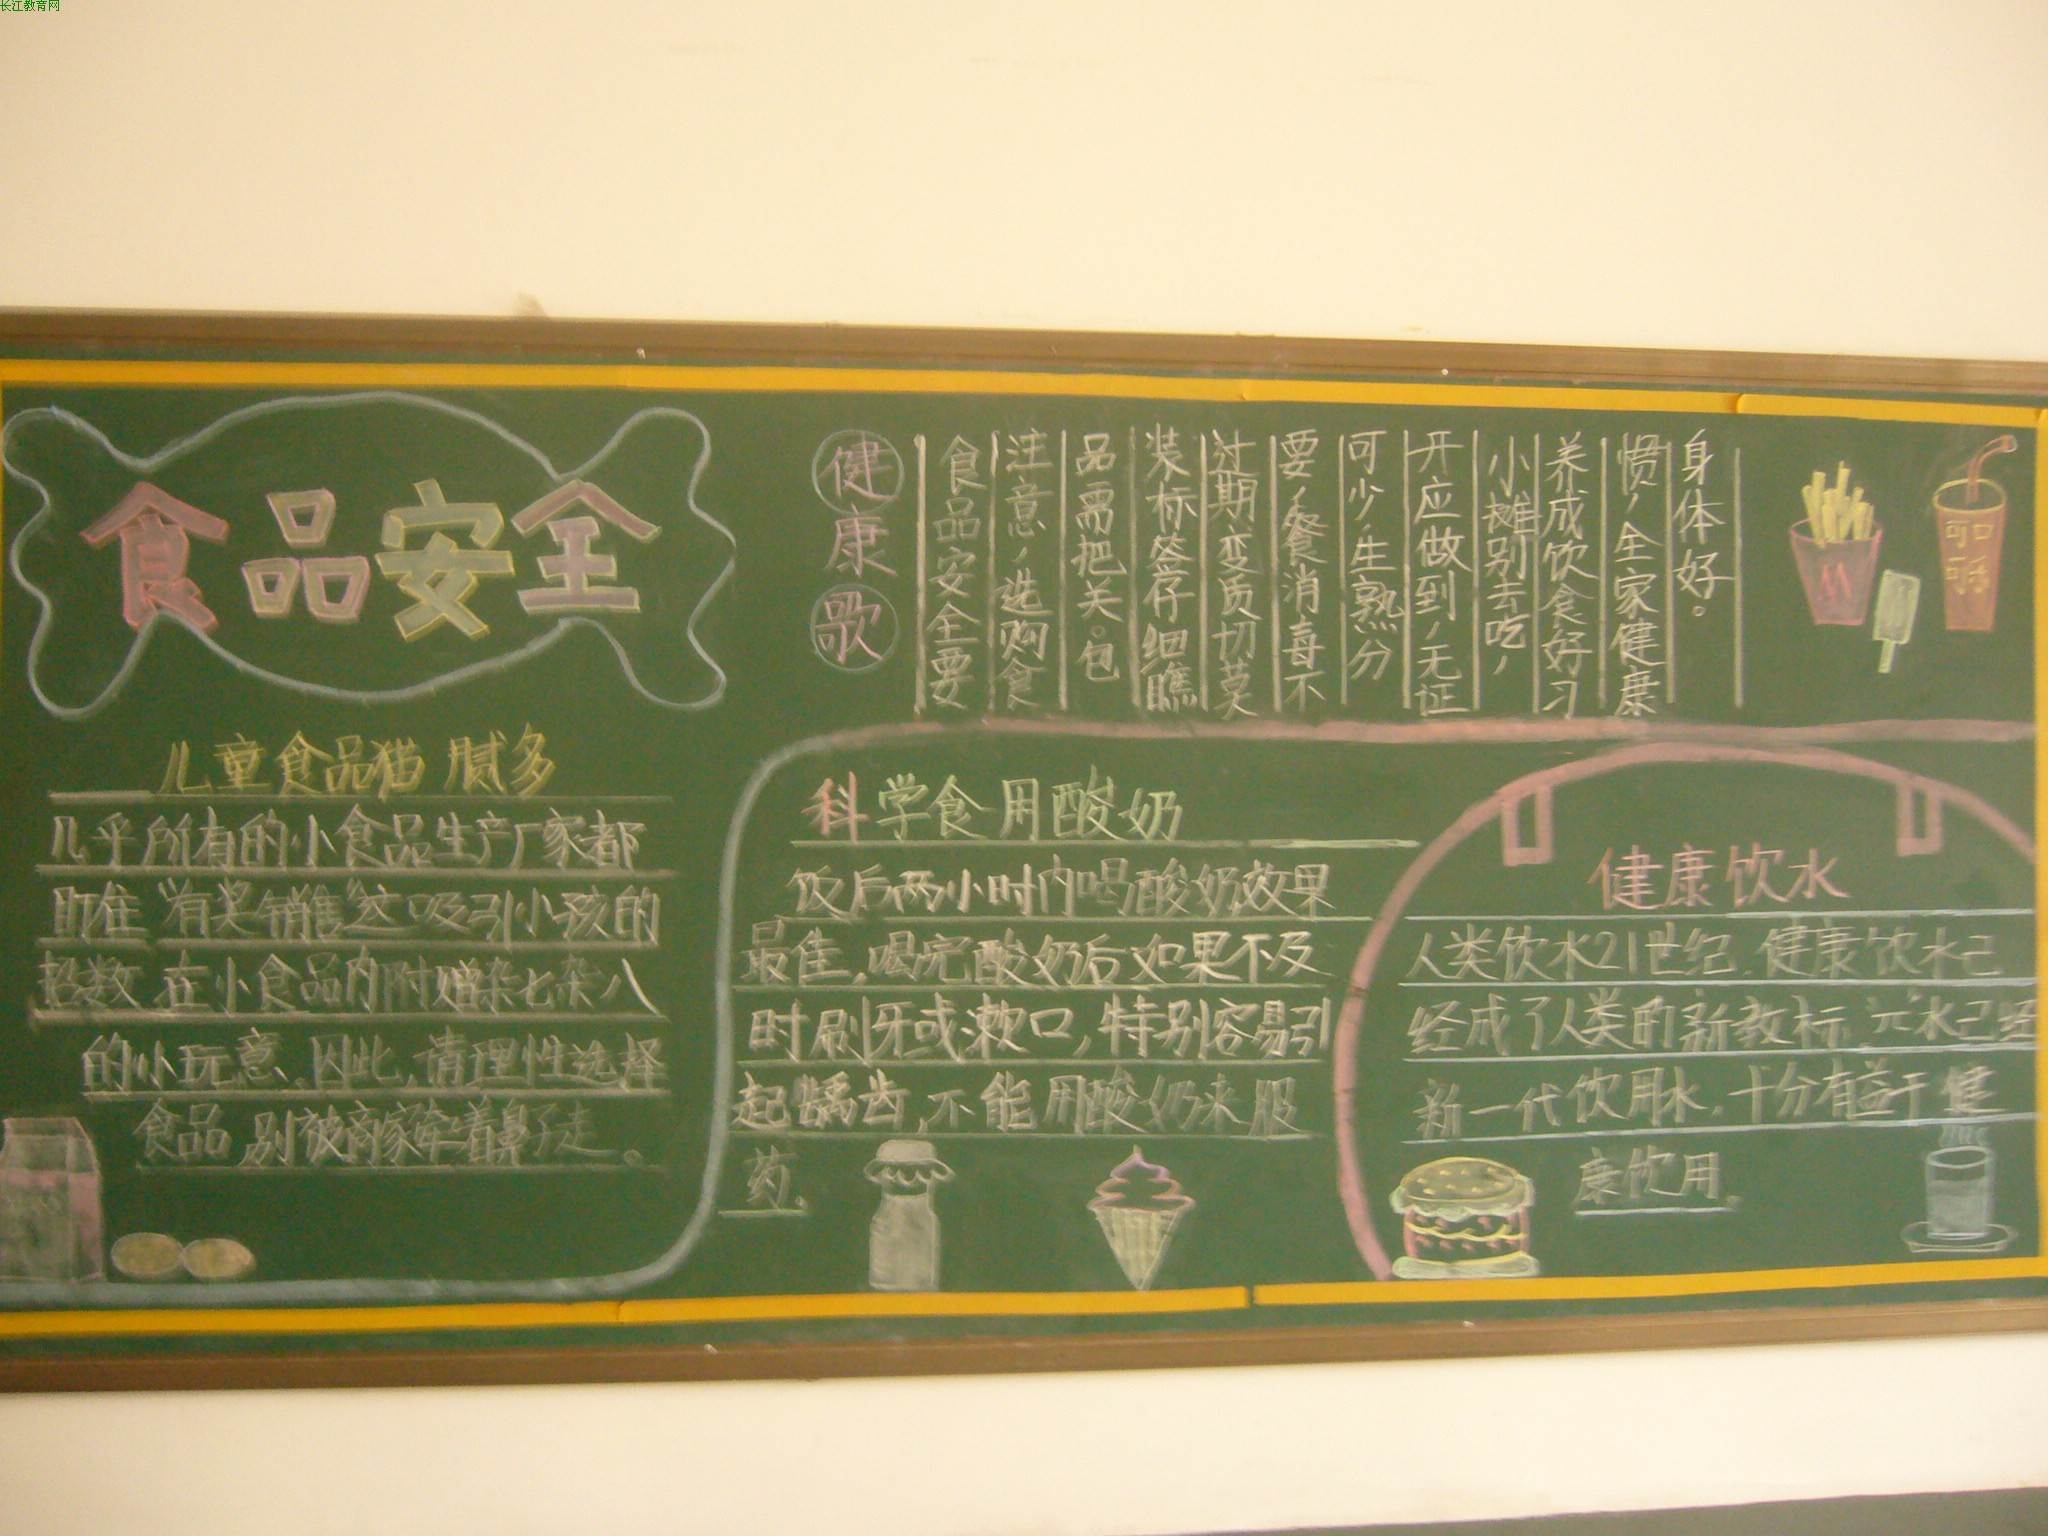 长江教育网
食品安全
健康歌
食品安全要
注意,选购食
品需把关。包
装标签仔细瞧
过期变质切莫
要,餐消毒不
可少,生熟分
开应做到,无证
小摊别去吃,
养成饮食好习
惯,全家健康
身体好。
可口
可
M
儿童食品猫腻多
几乎所有的小食品生产厂家都
盯住“有奖销售”这吸引小孩的
招数,在小食品内附赠杂七杂八
的小玩意。因此,请理性选择
食品,别被商家牵着鼻子走。
科学食用酸奶
饭后两小时内喝酸奶效果
最佳,喝完酸奶后如果不及
时刷牙或漱口,特别容易引
起龋齿,不能用酸奶来服
药.
健康饮水
人类饮水21世纪,健康饮水已
经成了人类的新教标,元水已经
新一代饮用水,十分有益于健
康饮用。